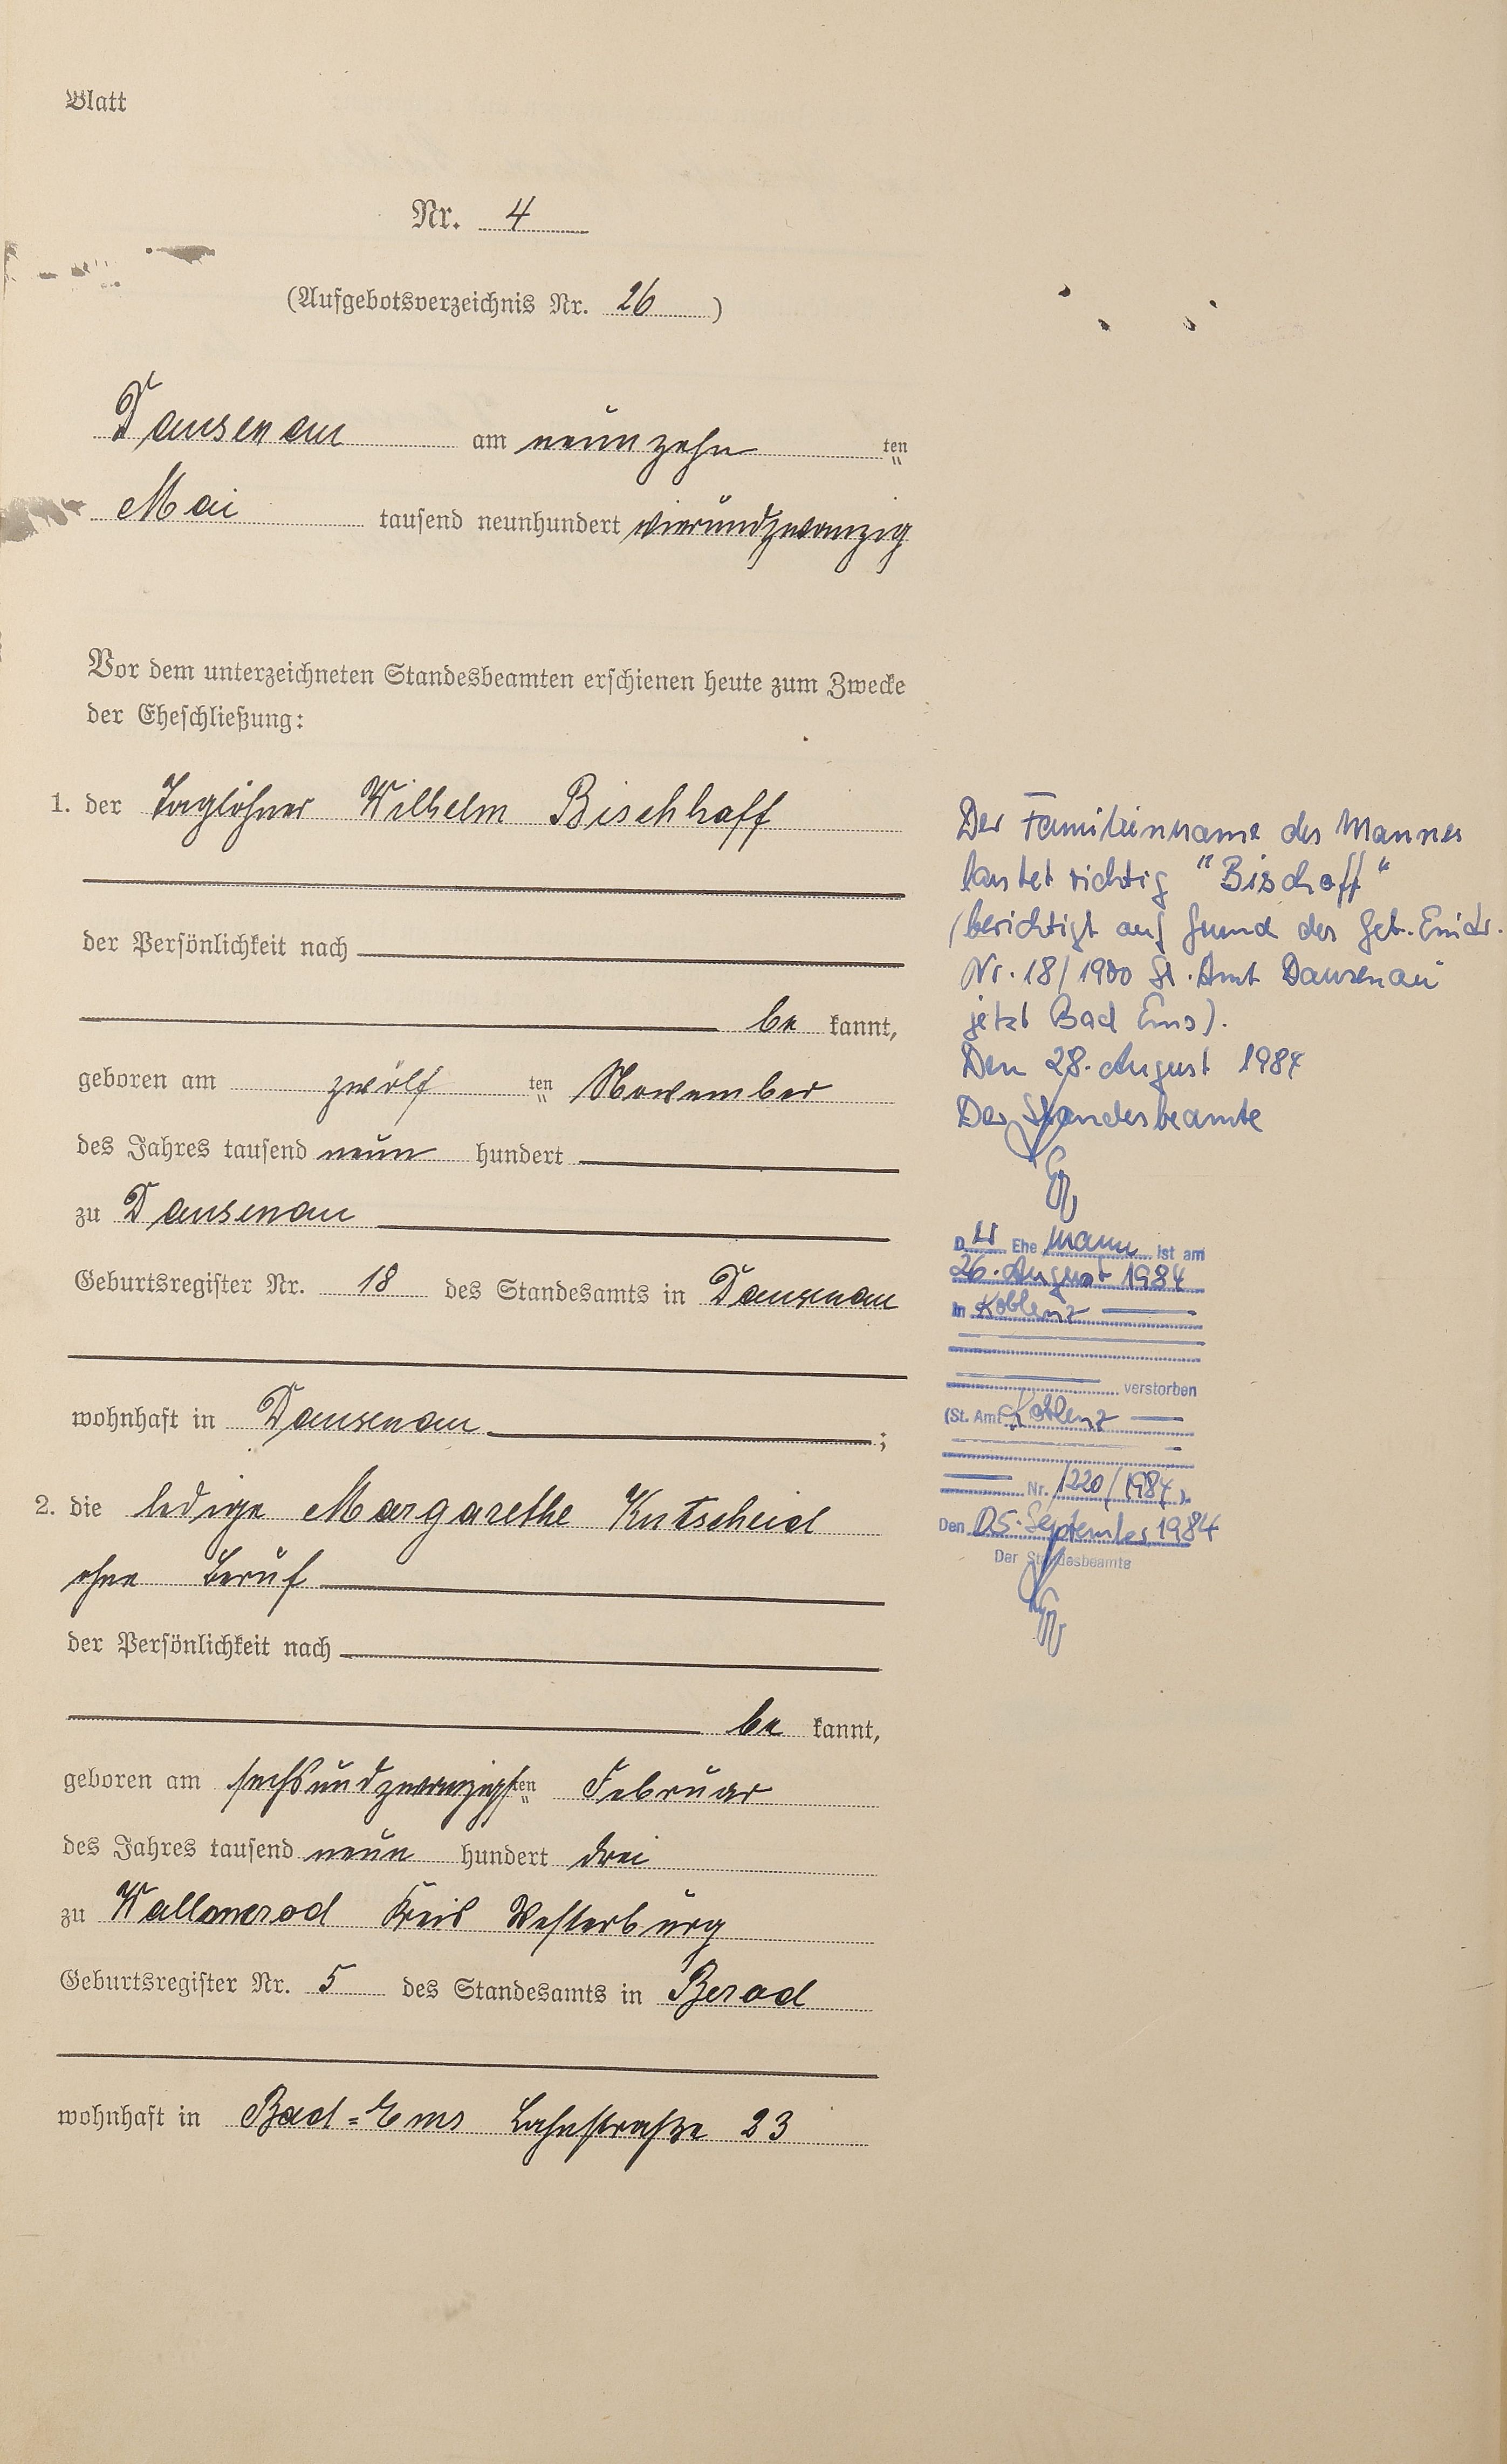 Blatt
Nr. 4
(Aufgebotsverzeichnis Nr. 26)
Dausenau am neunzehn ten
Mai tausend neunhundert vierundzwanzig
Vor dem unterzeichneten Standesbeamten erschienen heute zum Zwecke
der Eheschließung:
1. der Taglöhner Wilhelm Bischhoff
der Persönlichkeit nach
be kannt,
geboren am zwölf ten November
des Jahres tausend neun hundert
zu Dausenau
Geburtsregister Nr. 18 des Standesamts in Dausenau
wohnhaft in Dausenau;
2. die ledige Margarethe Kutscheid
ohne Beruf
der Persönlichkeit nach
be kannt,
geboren am sechsundzwanzigsten Februar
des Jahres tausend neun hundert drei
zu Wallmerod Kreis Westerburg
Geburtsregister Nr. 5 des Standesamts in Berod
wohnhaft in Bad=Ems Lahnstraße 23
Der Familienname des Mannes
lautet richtig "Bischoff"
(berichtigt auf Grund des Geb. Eintr.
Nr. 18/1900 St. Amt Dausenau
jetzt Bad Ems).
Den 28. August 1984
Der Standesbeamte
Der Ehemann ist am
26. August 1984
in Koblenz
verstorben
(St. Amt Koblenz
Nr. 1220/1984).
Den 05. September 1984
Der Standesbeamte